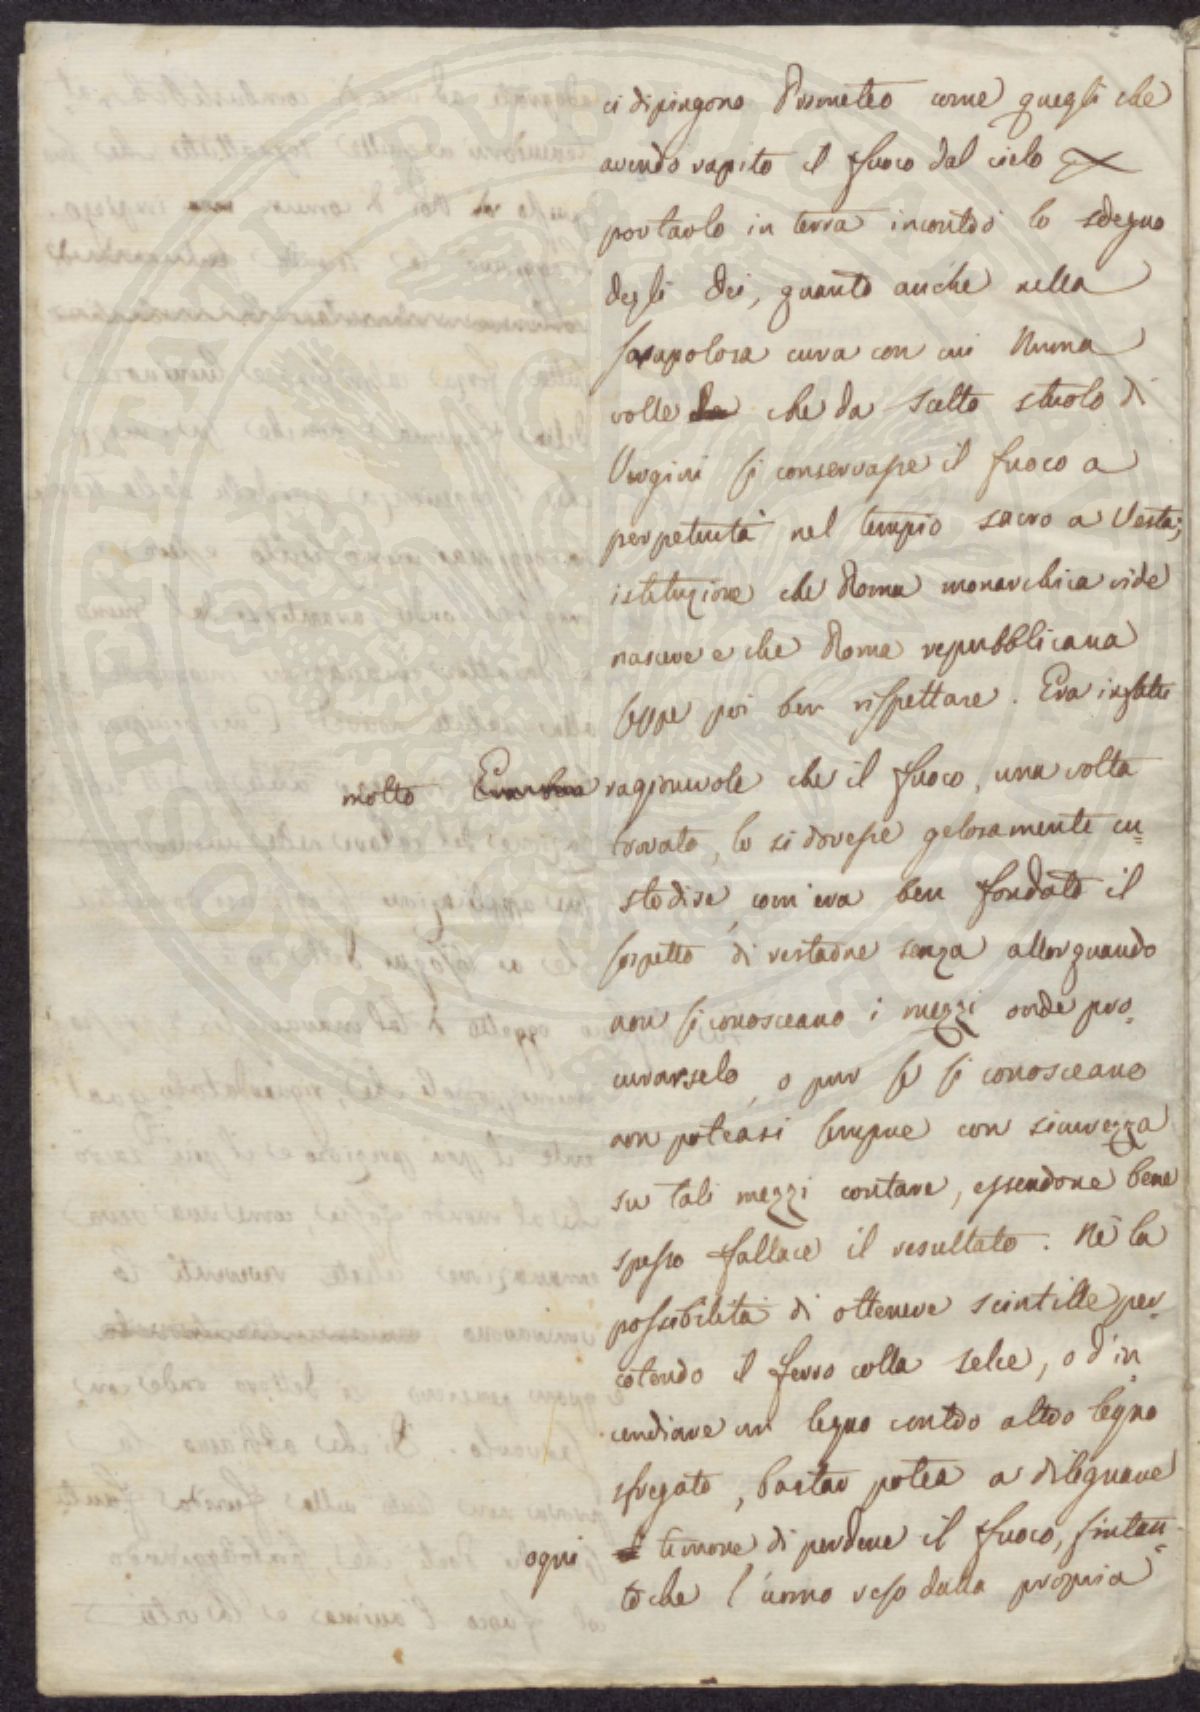 ci dipingono Prometeo come quegli che
avendo rapito il fuoco dal cielo
portarlo in terra incontrò lo sdegno
degli Dei, quanto anche nella
scrupolosa cura con cui Numa
volle che da scelto stuolo di
Vergini si conservasse il fuoco a
perpetuità nel tempio sacro a Vesta;
istituzione che Roma monarchica vide
nascere e che Roma repubblicana
seppe poi ben rispettare. Era infatti
molto ragionevole che il fuoco, una volta
trovato, lo si dovesse gelosamente cu=
stodire, com'era ben fondato il
sospetto di restarne senza allorquando
non si conosceano i mezzi onde pro=
curarselo, o pur se si conosceano
non poteasi sempre con sicurezza
su tali mezzi contare, essendone bene
spesso fallace il resultato. Nè la
possibilità di ottenere scintille per=
cotendo il ferro colla selce, o d'in=
cendiare un legno contro altro legno
sfregato, bastar potea a dileguare
ogni timore di perdere il fuoco, fintan=
toche l'uomo reso dalla propria